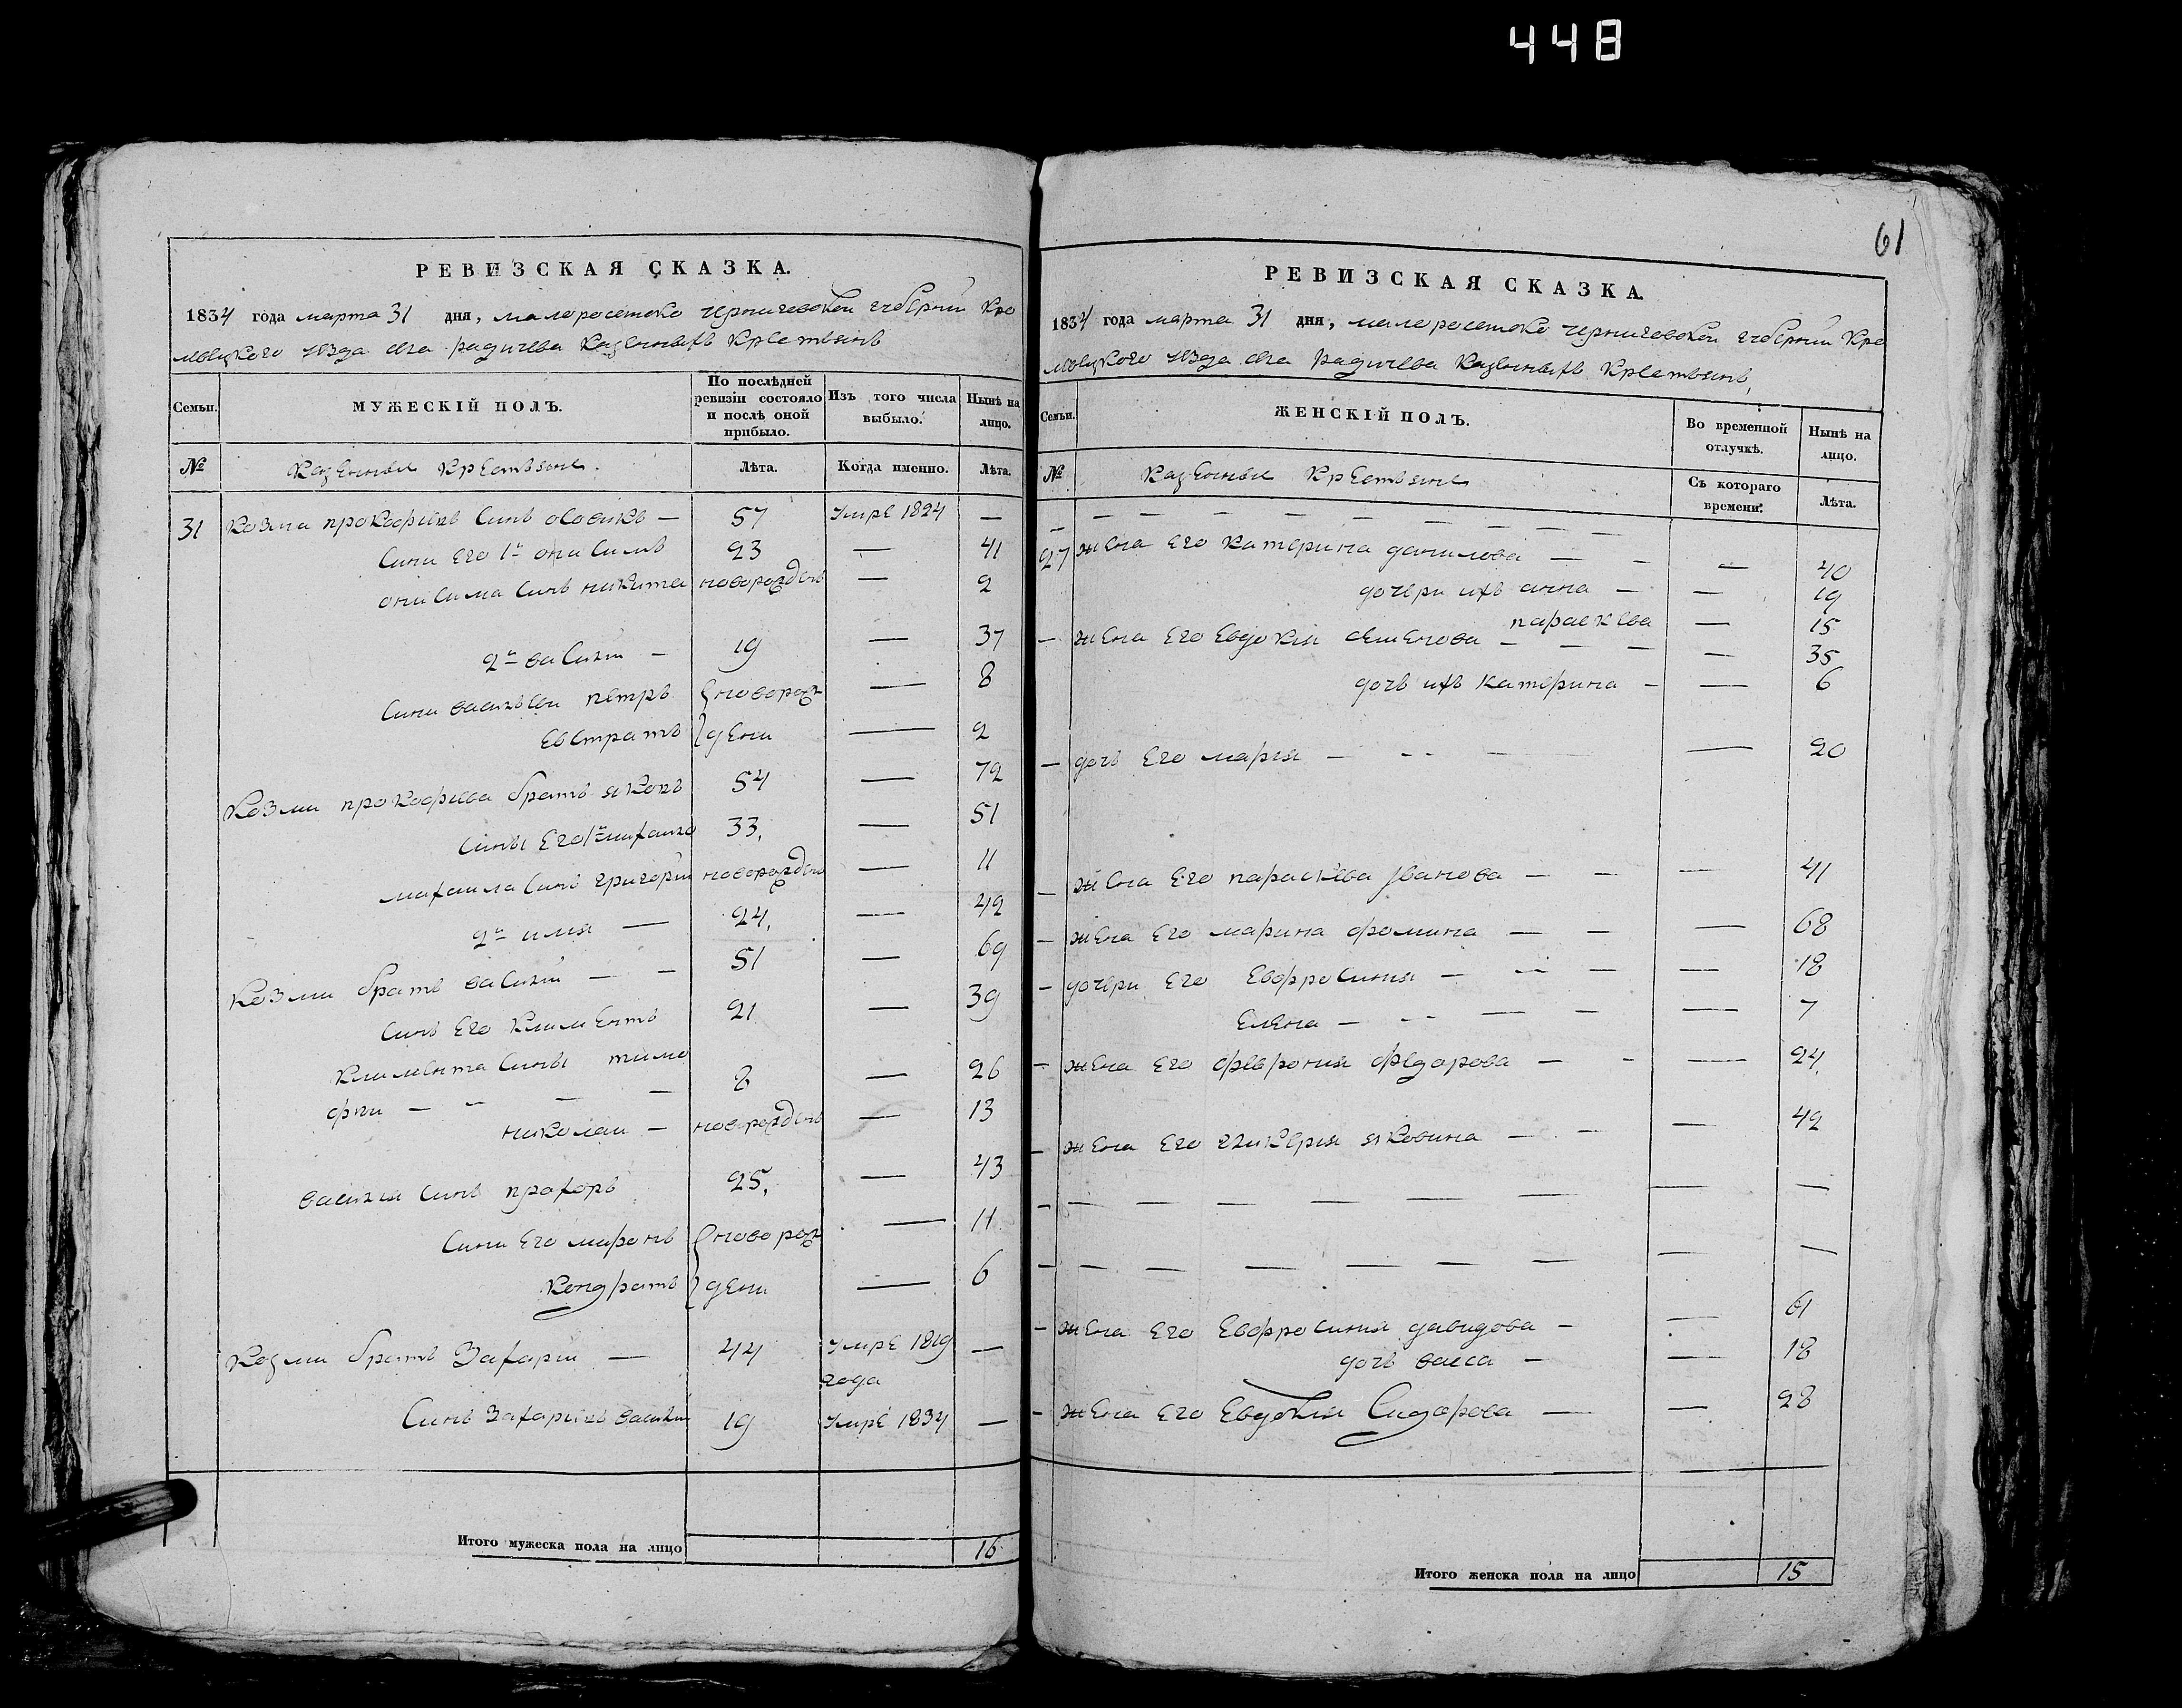 448
61
РЕВИЗСКАЯ СКАЗКА.
1834 года марта 31 дня, малоросейско черниговской губерний Кро
левецкого уезда села радичева казенныхъ крестьянъ
Семьи. МУЖЕСКІЙ ПОЛЪ. По послѣдней ревизіи состояло и послѣ оной прибыло. Изъ того числа выбыло. Нынѣ на лицо.
№ Казенныи крестьяне. Лѣта. Когда именно. Лѣта.
31 Козма прокофіевъ синъ — 57 умре 1824 —
сини его 1й онисимъ 23 — 41
онисима синъ никита новорожденъ — 2
2й василий — 19 — 37
сини васильеви петръ новорож — 8
евстратъ дени — 2
Козми прокофиева братъ яковъ 54 — 72
сины его 1й михаило 33, — 51
михаила синъ григорий новорожденъ — 11
2й илия — 24, — 42
Козми братъ василий — — 51 — 69
синъ его климентъ 21 — 39
климента сины тимо
фей — — — — 8 — 26
николай — новорожденъ — 13
василия синъ прохоръ 25, — 43
сини его миронъ новорож — 11
кондратъ дени — 6
Козми братъ Захарий — 44 умре 1819 —
года
Синъ Захариевъ василий 19 умре 1834 —
Итого мужеска пола на лицо 16
РЕВИЗСКАЯ СКАЗКА.
1834 года марта 31 дня, малоросейско черниговской губерний Кро
левецкого уезда села радичева казенныхъ крестьянъ,
Семьи. ЖЕНСКІЙ ПОЛЪ. Во временной отлучкѣ. Нынѣ на лицо.
№ Казенныи крестьяне Съ котораго времени. Лѣта.
— — — — — — — — —
27 жена его катерина данилова — — — 40
дочери ихъ анна — — 19
параскева — 15
— жена его евдокия семенова — — — — 35
дочь ихъ катерина — — 6
— дочь его мария — — — — 20
— жена его параскева Іванова — — — 41
— жена его марина фомина — — — 68
— дочери его евфросиния — — — — 18
елена — — — — — 7
— жена его феврония федорова — — — 24,
— жена его гликерия яковина — — — 42
— — — — — — — — —
— — — — — — — — —
— жена его евфросиния давидова — — 61
дочь васса — — 18
— жена его евдокия Сидорова — — 28
Итого женска пола на лицо 15